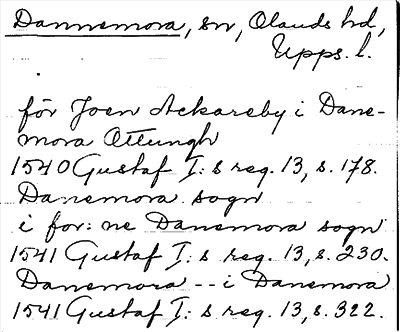 Dannemora, sn, Olands hd,
Upps. l.
för Joen Ackareby i Dane-
mora Ottungh
1540 Gustaf I: s reg. 13, s. 178.
Danemora sogn
i for: ne Danemora sogn
1541 Gustaf I: s reg. 13, s. 230.
Danemora -- i Danemora
1541 Gustaf I: s reg. 13, s. 322.